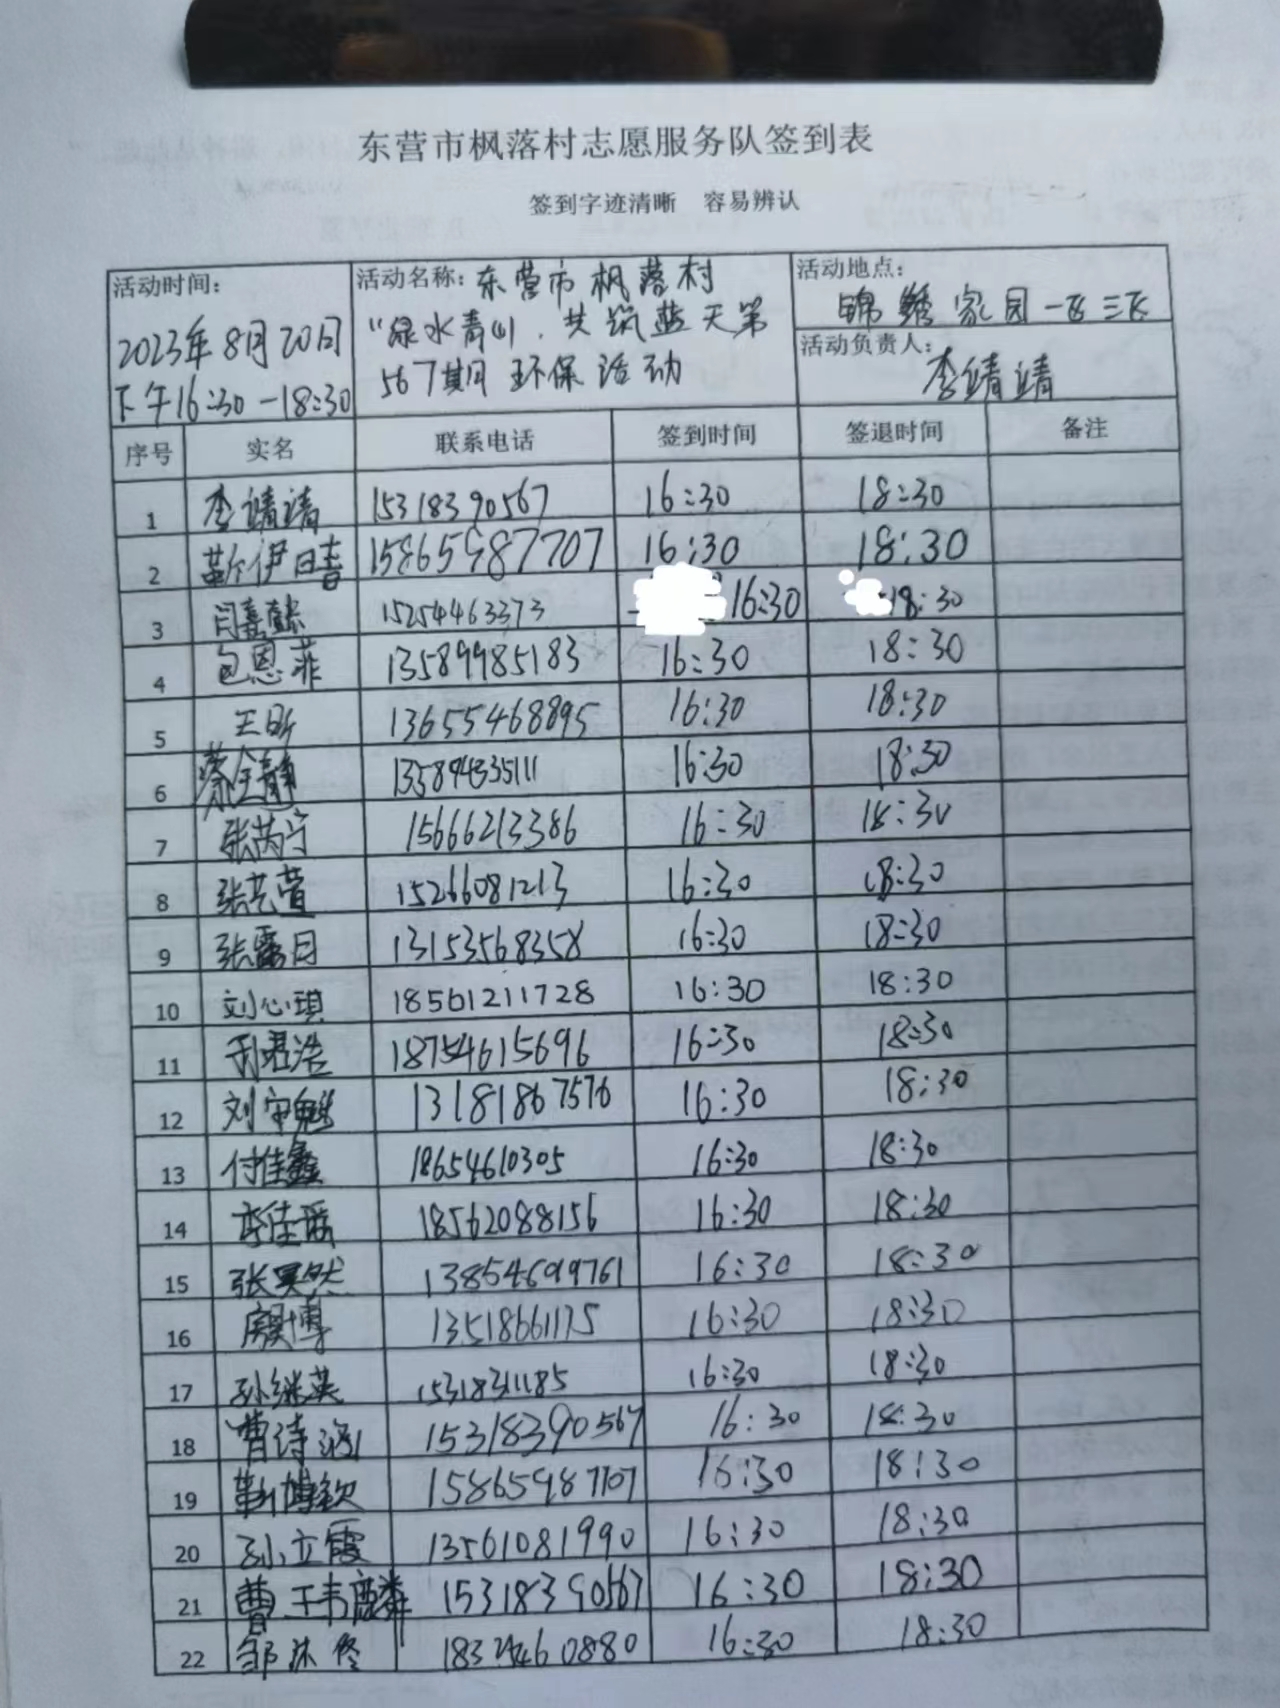 东营市枫落村志愿服务队签到表
签到字迹清晰 容易辨认
活动时间：
2023年8月20日
下午16:30-18:30
活动名称：东营市枫落村
"绿水青山.共筑蓝天第
567期环保活动
活动地点：
锦绣家园一区三区
活动负责人：
李靖靖
序号 实名 联系电话 签到时间 签退时间 备注
1 李靖靖 15318390567 16:30 18:30
2 靳伊日青 15865987707 16:30 18:30
3 闫嘉懿 15254463373 16:30 18:30
4 包恩菲 13589985183 16:30 18:30
5 王昕 13655468895 16:30 18:30
6 蔡全静 135894335111 16:30 18:30
7 张芮宁 15666213386 16:30 18:30
8 张艺萱 15266081213 16:30 18:30
9 张露月 13153568358 16:30 18:30
10 刘心琪 18561211728 16:30 18:30
11 18754615696 16:30 18:30
12 刘宇魁 13181867576 16:30 18:30
13 付佳鑫 18654610305 16:30 18:30
14 李佳瑶 18562088156 16:30 18:30
15 张昊然 13854699761 16:30 18:30
16 博 13518661175 16:30 18:30
17 孙继英 1531831185 16:30 18:30
18 曹诗涵 15318390567 16:30 18:30
19 靳博钦 15865987707 16:30 18:30
20 孙立霞 13561081990 16:30 18:30
21 曹王韦麟 15318390567 16:30 18:30
22 邹沐佟 16:30 18:30